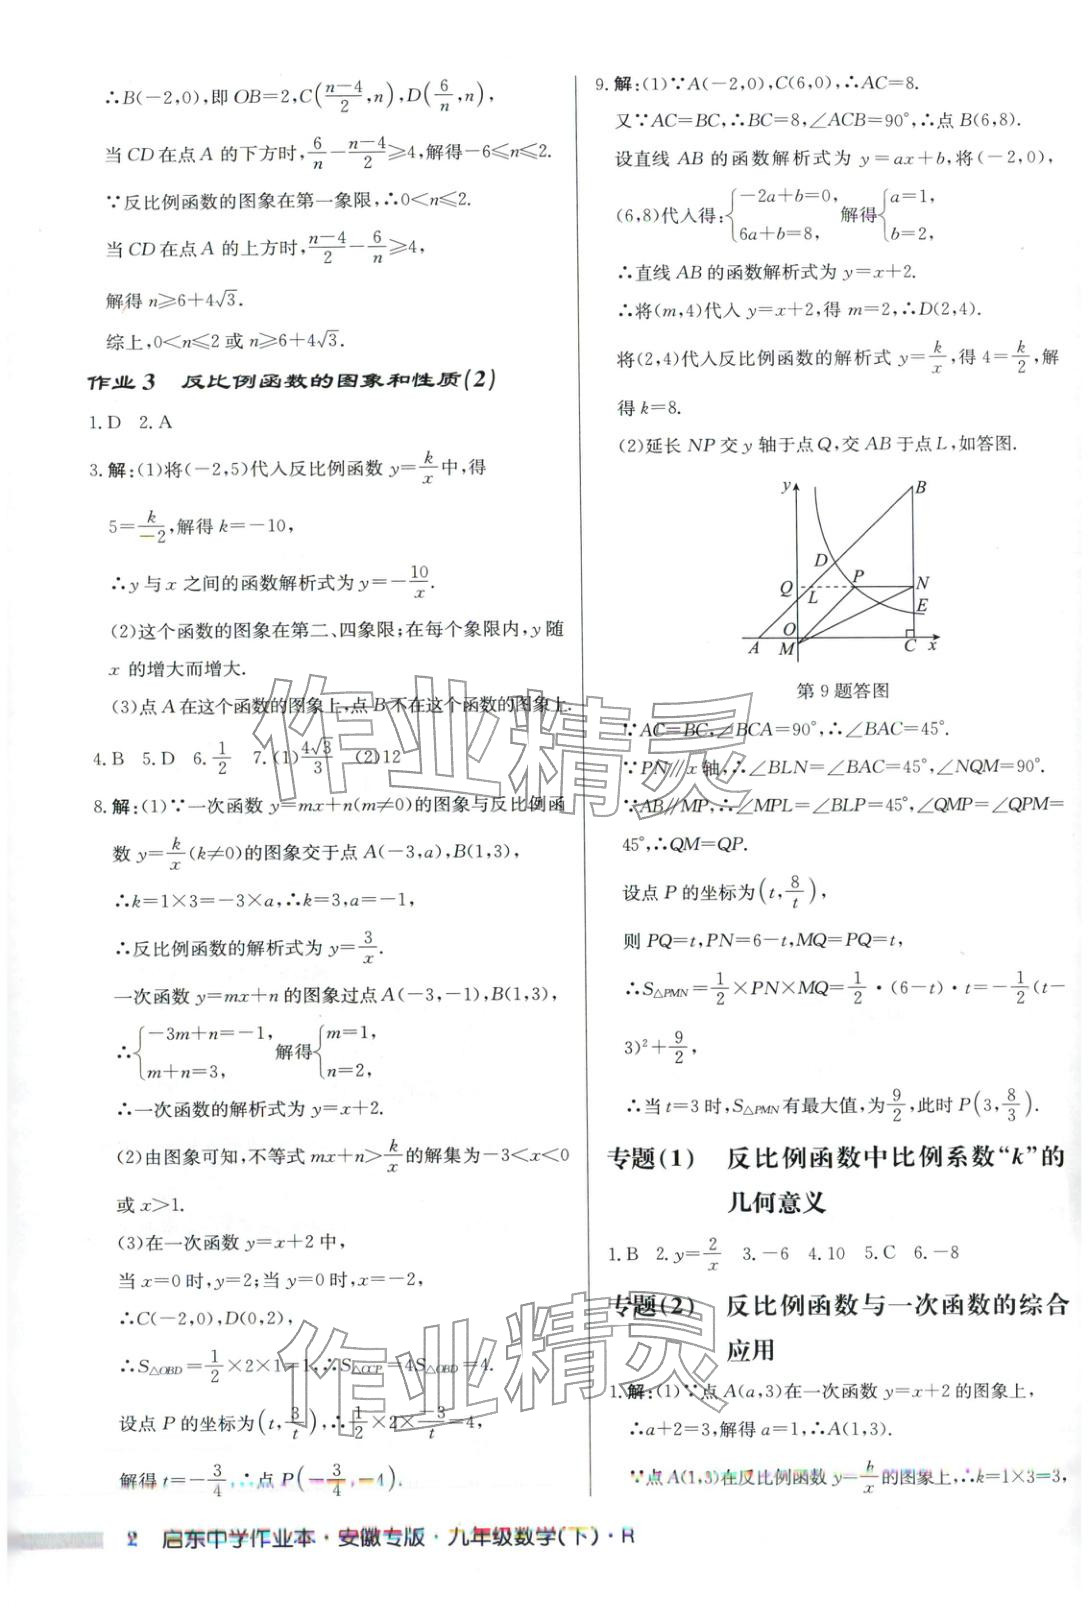 ∴B(－2,0),即 OB=2,C((n－4)/2,n),D(6/n,n),
当 CD 在点 A 的下方时,6/n－(n－4)/2≥4,解得－6≤n≤2.
∵反比例函数的图象在第一象限,∴0<n≤2.
当 CD 在点 A 的上方时,(n－4)/2－6/n≥4,
解得 n≥6+4√3.
综上,0<n≤2 或 n≥6+4√3.
作业 3 反比例函数的图象和性质(2)
1.D 2.A
3.解:(1)将(－2,5)代入反比例函数 y=k/x中,得
5=k/－2,解得 k=－10,
∴y 与 x 之间的函数解析式为 y=－10/x.
(2)这个函数的图象在第二、四象限;在每个象限内,y 随
x 的增大而增大.
(3)点 A 在这个函数的图象上,点 B 不在这个函数的图象上.
4.B 5.D 6.1/2 7.(1)4√3/3 (2)12
8.解:(1)∵一次函数 y=mx+n(m≠0)的图象与反比例函
数 y=k/x(k≠0)的图象交于点 A(－3,a),B(1,3),
∴k=1×3=－3×a,∴k=3,a=－1,
∴反比例函数的解析式为 y=3/x.
一次函数 y=mx+n 的图象过点 A(－3,－1),B(1,3),
∴{－3m+n=－1, m+n=3, 解得{m=1, n=2,
∴一次函数的解析式为 y=x+2.
(2)由图象可知,不等式 mx+n>k/x的解集为－3<x<0
或 x>1.
(3)在一次函数 y=x+2 中,
当 x=0 时,y=2;当 y=0 时,x=－2,
∴C(－2,0),D(0,2),
∴S△OBD=1/2×2×1=1,∴S△OCP=4S△OBD=4.
设点 P 的坐标为(t,3/t),∴1/2×2×－3/t=4,
解得 t=－3/4,∴点 P(－3/4,－4).
9.解:(1)∵A(－2,0),C(6,0),∴AC=8.
又∵AC=BC,∴BC=8,∠ACB=90°,∴点 B(6,8).
设直线 AB 的函数解析式为 y=ax+b,将(－2,0),
(6,8)代入得:{－2a+b=0, 6a+b=8, 解得{a=1, b=2,
∴直线 AB 的函数解析式为 y=x+2.
∴将(m,4)代入 y=x+2,得 m=2,∴D(2,4).
将(2,4)代入反比例函数的解析式 y=k/x,得 4=k/2,解
得 k=8.
(2)延长 NP 交 y 轴于点 Q,交 AB 于点 L,如答图.
y
B
D
P
Q
L
N
E
O
A
M
C
x
第 9 题答图
∵AC=BC,∠BCA=90°,∴∠BAC=45°.
∵PN∥x 轴,∴∠BLN=∠BAC=45°,∠NQM=90°.
∵AB∥MP,∴∠MPL=∠BLP=45°,∠QMP=∠QPM=
45°,∴QM=QP.
设点 P 的坐标为(t,8/t),
则 PQ=t,PN=6－t,MQ=PQ=t,
∴S△PMN=1/2×PN×MQ=1/2·(6－t)·t=－1/2(t－
3)²+9/2,
∴当 t=3 时,S△PMN有最大值,为9/2,此时 P(3,8/3).
专题(1) 反比例函数中比例系数“k”的
几何意义
1.B 2.y=2/x 3.－6 4.10 5.C 6.－8
专题(2) 反比例函数与一次函数的综合
应用
1.解:(1)∵点 A(a,3)在一次函数 y=x+2 的图象上,
∴a+2=3,解得 a=1,∴A(1,3).
∵点 A(1,3)在反比例函数 y=k/x的图象上,∴k=1×3=3,
2 启东中学作业本·安徽专版·九年级数学(下)·R
作业精灵
作业精灵